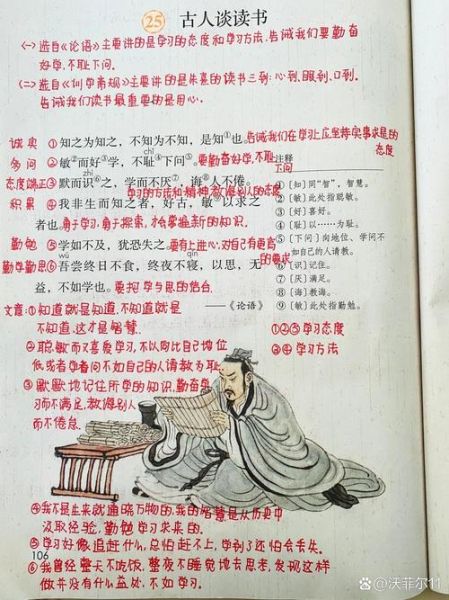 25 古人谈读书
(一)选自《论语》主要讲的是学习的态度和学习方法,告诫我们要勤奋
好学,不耻下问。
(二)选自《训学斋规》主要讲的是朱熹的读书三到:心到、眼到、口到。
告诫我们读书最重要的是用心。
诚实 ①知之为知之,不知为不知,是知①也。告诫我们在学习上应坚持实事求是的
态度
多问 ②敏②而好③学,不耻④下问⑤。要勤奋好学,不耻
chǐ
下问
态度端正 ③默而识⑥之,学而不厌⑦,诲⑧人不倦。
zhì
学习的方法和精神,教得别人的态度
积累 ④我非生而知之者,好古,敏⑨以求之
者也。勇于学习,勇于探索,才会掌握新的知识。
勤勉 ⑤学如不及,犹恐失之。要有上进心,对自己有更高
的要求
wú qǐn
勤学勤思 ⑥吾尝终日不食,终夜不寝,以思,无
益,不如学也。要把学与思的结合
——《论语》
注释
①〔知〕同“智”,智慧。
②〔敏〕此处指聪敏。
③〔好〕喜好。
④〔耻〕以……为耻。
⑤〔下问〕向地位、学问不
如自己的人请教。
⑥〔识〕记住。
⑦〔厌〕满足。
⑧〔诲〕教诲。
⑨〔敏〕此处指勤勉。
①②③学习态度
③④学习方法
文意:①知道就是知道,不知道就是
不知道,这才是智慧。
②聪敏而又喜爱学习,不以向比自己地位
低或者学者问不如自己的人请教为耻
③默默地记住所学的知识,勤奋学
习而不满足,教得别人
而不倦怠
④我不是生来就通晓万物的,我的智慧是从历史中
汲取经验,勤勉学习求来的。
⑤学习好像追赶什么,总怕赶不上,学到了还怕会丢失。
⑥我曾经整天不吃饭,整夜不睡觉地去思考,发现这样
做并没有什么益处,不如学习。
106
@沃菲尔11